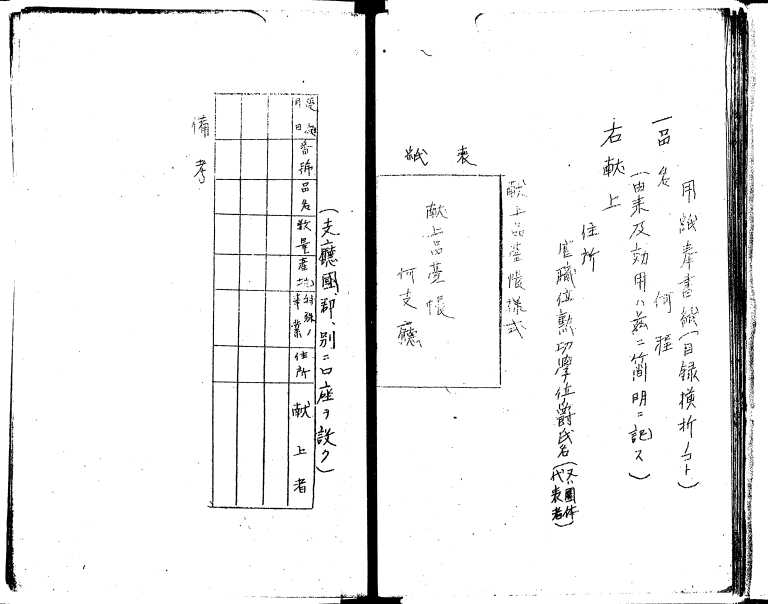 用紙奉書紙(目録横折ノコト)
一品名 何程
(由来及効用ハ茲ニ簡明ニ記ス)
右献上
住所
官職位勲功學位爵氏名(又ハ團体代表者)
献上品臺帳様式
表紙
献上品臺帳
何支廳
(支廳國、郡、別ニ口座ヲ設ク)
月日
番號
品名
数量
產地
特殊ノ事業
住所
献上者
備考